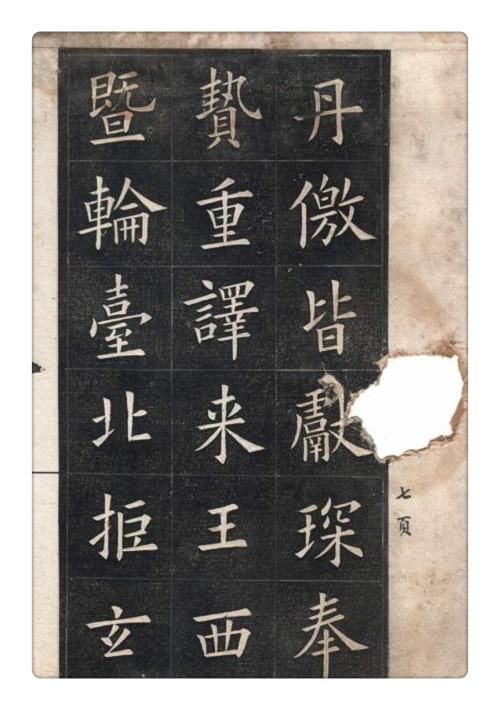 丹僌皆獻琛奉
贄重譯来王西
暨輪臺北拒玄
七頁